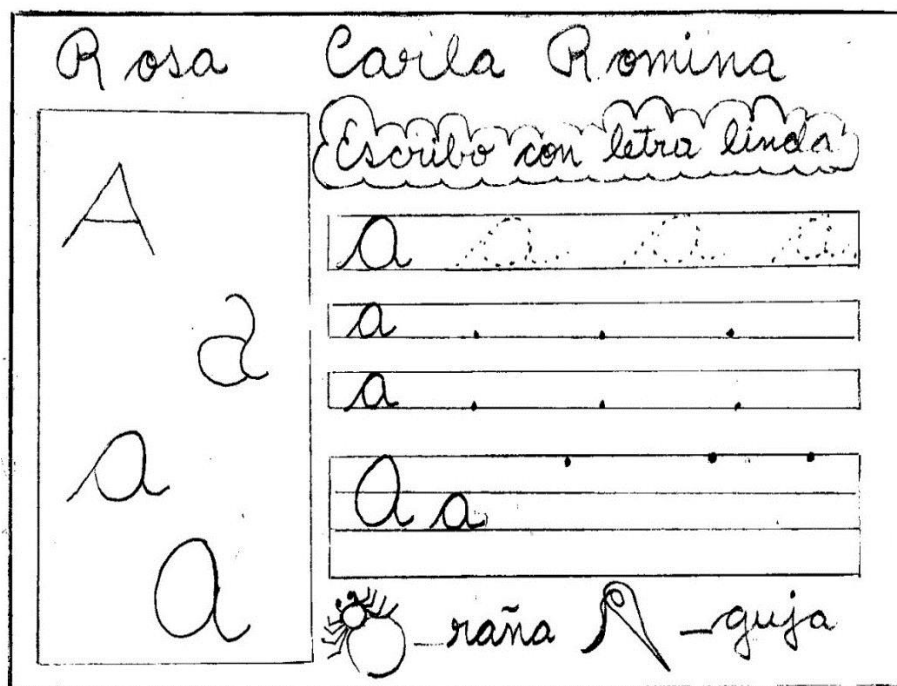 Rosa Carila Romina
Escribo con letra linda
A
a
a
a
a a a a
a
a
A a
_raña _guja